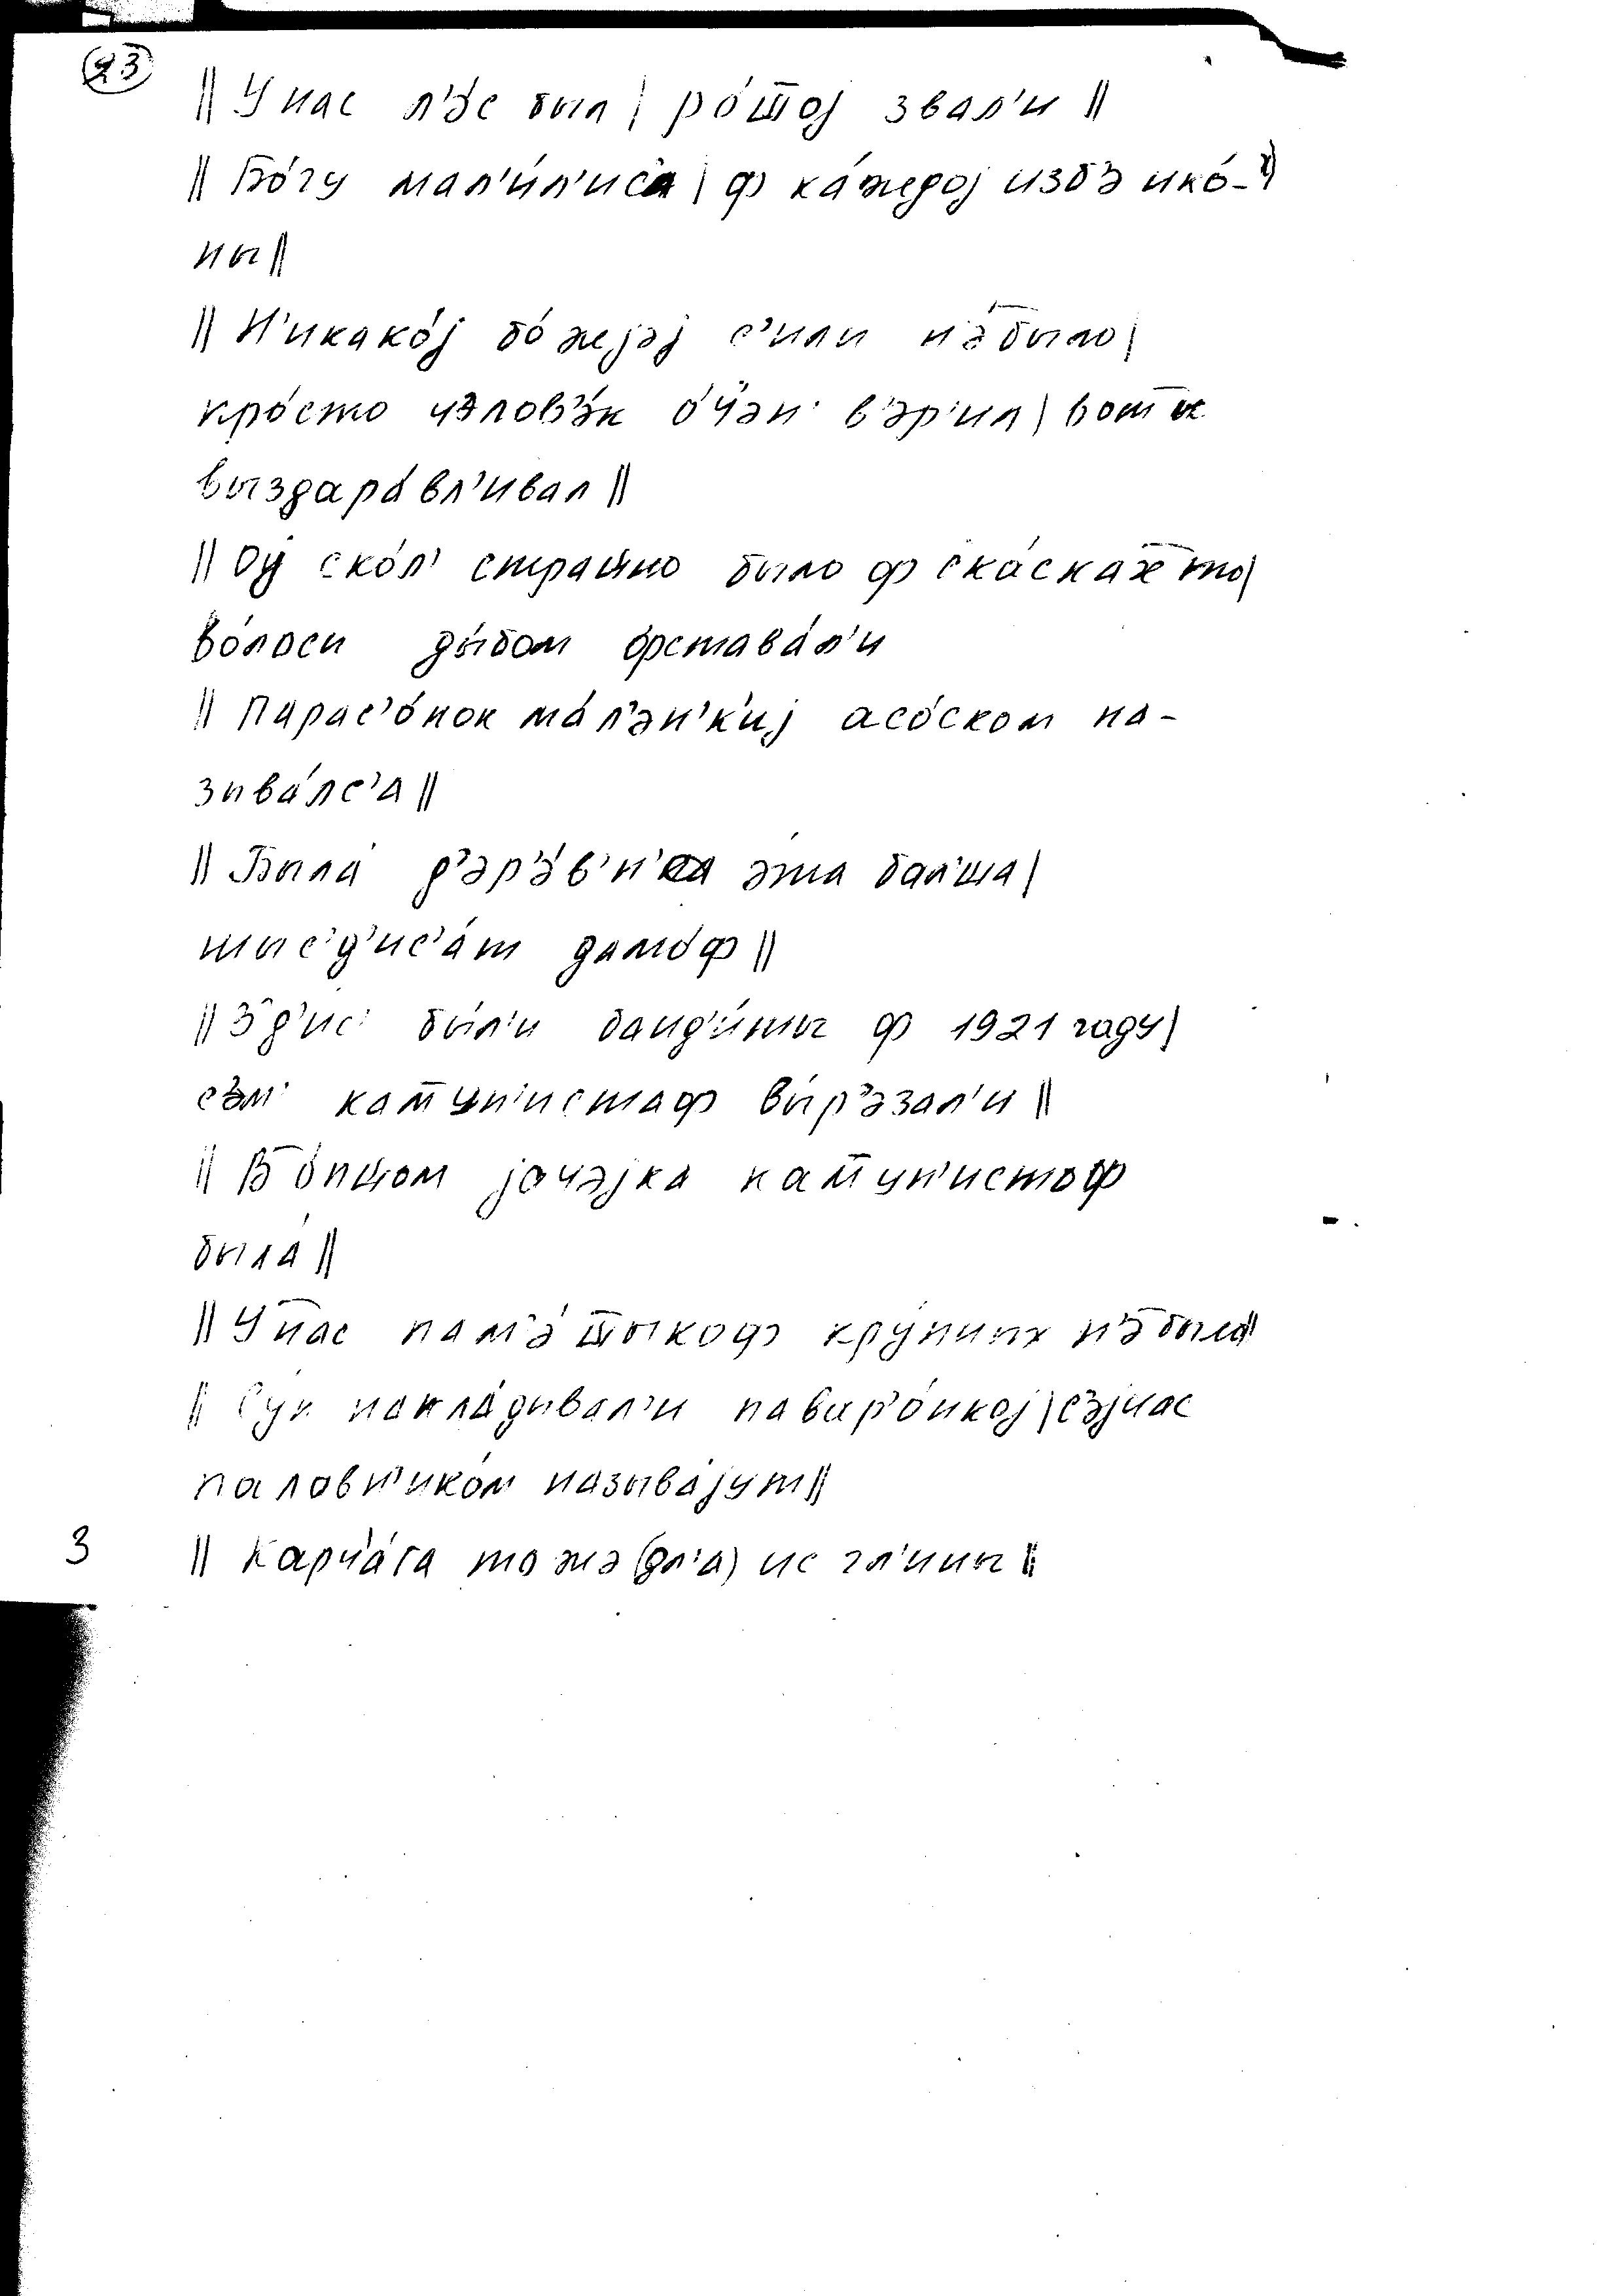 23
|| У нас л'э́с был | ро́т̅ој звал'и ||
|| Бо́гу мал'и́л'иса | ф ка́ждој избэ ико́-
ны ||
|| Н'икако́ј бо́жјэј с'илы н'э́ было |
про́сто чэлов'э́к о́ч'эн' в'эр'ил | вот и
выздара́вл'ивал ||
|| Оj ско́л' страшно было ф ска́сках то |
во́лосы ды́бом фстава́л'и
|| Парас'о́нок ма́л'эн'к'иј асо́ском на-
зыва́лс'а ||
|| Была́ д'эр'э́в'н'а э́та бал'ша |
тыс'д'ис'а́т дамо́ф ||
|| З'д'ис' бы́л'и банд'и́ты ф 1921 гаду |
сэм' кам̅ун'истаф вы́р'эзал'и ||
|| В о́пщом јачэјка кам̅ун'истоф
была́ ||
|| У нас пам'а́т̅ыкоф кру́пных н'э́ было ||
|| Суп накла́дывал'и павар'о́нкој | сэјчас
паловн'ико́м называ́јут ||
3 || Карча́га тожэ (дл'а) ис гл'ины ||